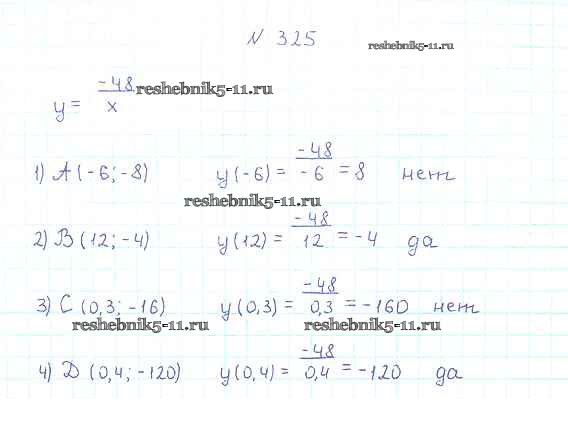 № 325
reshebnik5-11.ru
y = -48/x
reshebnik5-11.ru
1) A (-6; -8) y(-6) = -48/-6 = 8 нет
reshebnik5-11.ru
2) B (12; -4) y(12) = -48/12 = -4 да
3) C (0,3; -16) y(0,3) = -48/0,3 = -160 нет
reshebnik5-11.ru reshebnik5-11.ru
4) D (0,4; -120) y(0,4) = -48/0,4 = -120 да